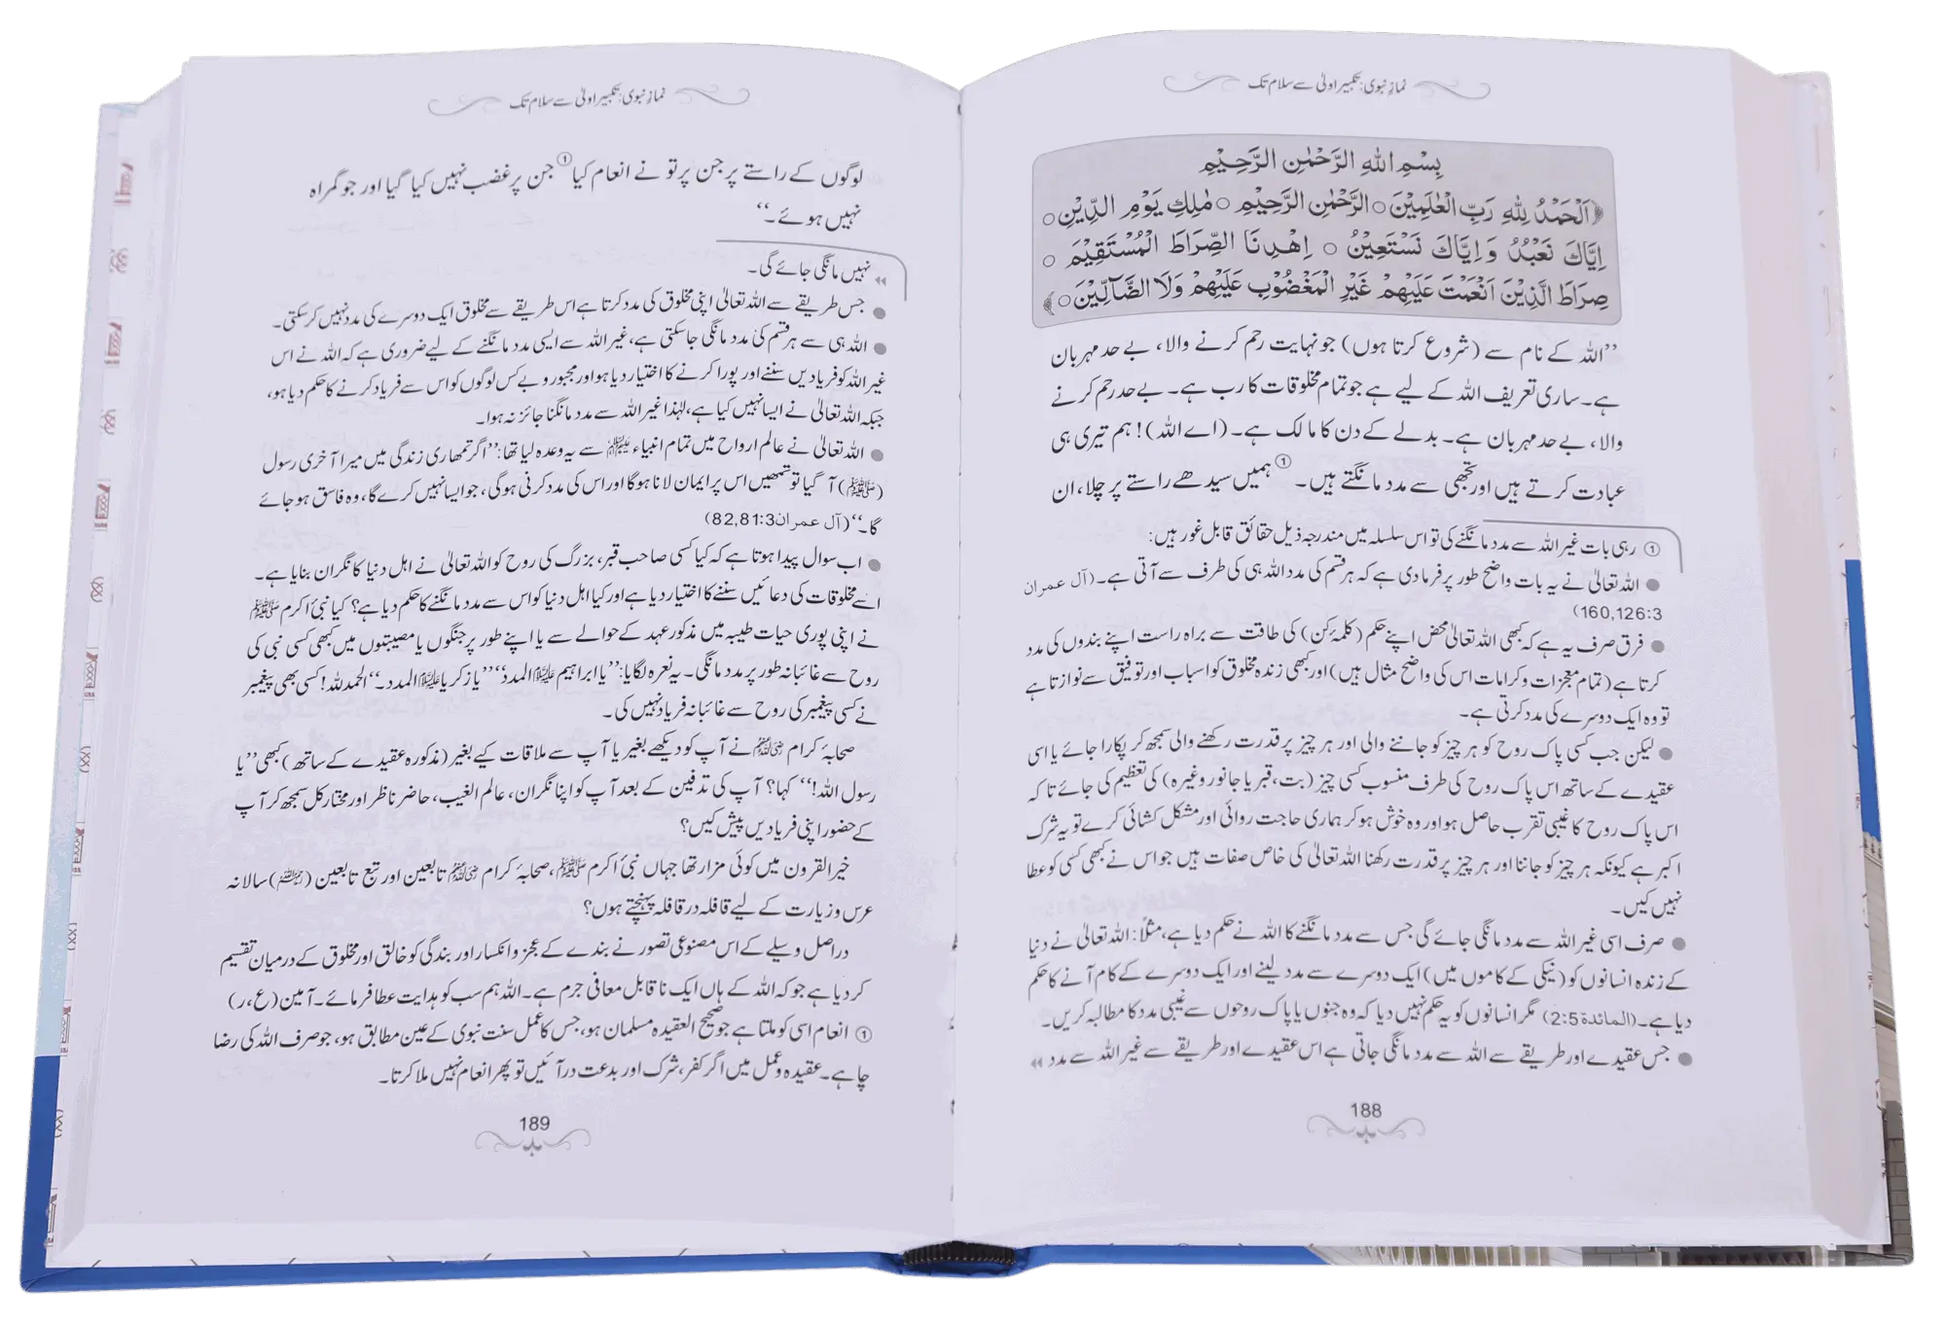 نمازِ نبوی: تکبیر اولیٰ سے سلام تک
بِسْمِ اللهِ الرَّحْمٰنِ الرَّحِيْمِ
﴿اَلْحَمْدُ لِلّٰهِ رَبِّ الْعٰلَمِيْنَ○ الرَّحْمٰنِ الرَّحِيْمِ○ مٰلِكِ يَوْمِ الدِّيْنِ○
اِيَّاكَ نَعْبُدُ وَاِيَّاكَ نَسْتَعِيْنُ○ اِهْدِنَا الصِّرَاطَ الْمُسْتَقِيْمَ○
صِرَاطَ الَّذِيْنَ اَنْعَمْتَ عَلَيْهِمْ غَيْرِ الْمَغْضُوْبِ عَلَيْهِمْ وَلَا الضَّآلِّيْنَ○﴾
’’اللہ کے نام سے (شروع کرتا ہوں) جو نہایت رحم کرنے والا، بے حد مہربان
ہے۔ ساری تعریف اللہ کے لیے ہے جو تمام مخلوقات کا رب ہے۔ بے حد رحم کرنے
والا، بے حد مہربان ہے۔ بدلے کے دن کا مالک ہے۔ (اے اللہ)! ہم تیری ہی
عبادت کرتے ہیں اور تجھی سے مدد مانگتے ہیں۔① ہمیں سیدھے راستے پر چلا، ان
① رہی بات غیر اللہ سے مدد مانگنے کی تو اس سلسلہ میں مندرجہ ذیل حقائق قابل غور ہیں:
● اللہ تعالیٰ نے یہ بات واضح طور پر فرما دی ہے کہ ہر قسم کی مدد اللہ ہی کی طرف سے آتی ہے۔ (آل عمران
160,126:3)
● فرق صرف یہ ہے کہ کبھی اللہ تعالیٰ محض اپنے حکم (کلمۂ کن) کی طاقت سے براہ راست اپنے بندوں کی مدد
کرتا ہے (تمام معجزات و کرامات اس کی واضح مثال ہیں) اور کبھی زندہ مخلوق کو اسباب اور توفیق سے نوازتا ہے
تو وہ ایک دوسرے کی مدد کرتی ہے۔
● لیکن جب کسی پاک روح کو ہر چیز کو جاننے والی اور ہر چیز پر قدرت رکھنے والی سمجھ کر پکارا جائے یا اسی
عقیدے کے ساتھ اس پاک روح کی طرف منسوب کسی چیز (بت، قبر یا جانور وغیرہ) کی تعظیم کی جائے تاکہ
اس پاک روح کا غیبی تقرب حاصل ہو اور وہ خوش ہو کر ہماری حاجت روائی اور مشکل کشائی کرے تو یہ شرک
اکبر ہے کیونکہ ہر چیز کو جاننا اور ہر چیز پر قدرت رکھنا اللہ تعالیٰ کی خاص صفات ہیں جو اس نے کبھی کسی کو عطا
نہیں کیں۔
● صرف اسی غیر اللہ سے مدد مانگی جائے گی جس سے مدد مانگنے کا اللہ نے حکم دیا ہے، مثلاً: اللہ تعالیٰ نے دنیا
کے زندہ انسانوں کو (نیکی کے کاموں میں) ایک دوسرے سے مدد لینے اور ایک دوسرے کے کام آنے کا حکم
دیا ہے۔ (المائدة 2:5) مگر انسانوں کو یہ حکم نہیں دیا کہ وہ جنوں یا پاک روحوں سے غیبی مدد کا مطالبہ کریں۔
● جس عقیدے اور طریقے سے اللہ سے مدد مانگی جاتی ہے اس عقیدے اور طریقے سے غیر اللہ سے مدد ◄◄
188
نمازِ نبوی: تکبیر اولیٰ سے سلام تک
لوگوں کے راستے پر جن پر تو نے انعام کیا① جن پر غضب نہیں کیا گیا اور جو گمراہ
نہیں ہوئے۔‘‘
◄◄ نہیں مانگی جائے گی۔
● جس طریقے سے اللہ تعالیٰ اپنی مخلوق کی مدد کرتا ہے اس طریقے سے مخلوق ایک دوسرے کی مدد نہیں کر سکتی۔
● اللہ ہی سے ہر قسم کی مدد مانگی جا سکتی ہے، غیر اللہ سے ایسی مدد مانگنے کے لیے ضروری ہے کہ اللہ نے اس
غیر اللہ کو فریادیں سننے اور پورا کرنے کا اختیار دیا ہو اور مجبور و بے کس لوگوں کو اس سے فریاد کرنے کا حکم دیا ہو،
جبکہ اللہ تعالیٰ نے ایسا نہیں کیا ہے، لہٰذا غیر اللہ سے مدد مانگنا جائز نہ ہوا۔
● اللہ تعالیٰ نے عالم ارواح میں تمام انبیاء ﷺ سے یہ وعدہ لیا تھا: ’’اگر تمھاری زندگی میں میرا آخری رسول
(ﷺ) آ گیا تو تمھیں اس پر ایمان لانا ہوگا اور اس کی مدد کرنی ہوگی، جو ایسا نہیں کرے گا، وہ فاسق ہو جائے
گا۔‘‘ (آل عمران 82,81:3)
● اب سوال پیدا ہوتا ہے کہ کیا کسی صاحب قبر، بزرگ کی روح کو اللہ تعالیٰ نے اہل دنیا کا نگران بنایا ہے۔
اسے مخلوقات کی دعائیں سننے کا اختیار دیا ہے اور کیا اہل دنیا کو اس سے مدد مانگنے کا حکم دیا ہے؟ کیا نبیٔ اکرم ﷺ
نے اپنی پوری حیات طیبہ میں مذکور عہد کے حوالے سے یا اپنے طور پر جنگوں یا مصیبتوں میں کبھی کسی نبی کی
روح سے غائبانہ طور پر مدد مانگی۔ یہ نعرہ لگایا: ’’یا ابراہیم علیہ السلام المدد‘‘ ’’یا زکریا علیہ السلام المدد۔‘‘ الحمد للہ! کسی بھی پیغمبر
نے کسی پیغمبر کی روح سے غائبانہ فریاد نہیں کی۔
صحابۂ کرام رضی اللہ عنہم نے آپ کو دیکھے بغیر یا آپ سے ملاقات کیے بغیر (مذکورہ عقیدے کے ساتھ) کبھی ’’یا
رسول اللہ!‘‘ کہا؟ آپ کی تدفین کے بعد آپ کو اپنا نگران، عالم الغیب، حاضر ناظر اور مختار کل سمجھ کر آپ
کے حضور اپنی فریادیں پیش کیں؟
خیر القرون میں کوئی مزار تھا جہاں نبیٔ اکرم ﷺ، صحابۂ کرام رضی اللہ عنہم تابعین اور تبع تابعین (رحمہم اللہ) سالانہ
عرس و زیارت کے لیے قافلہ در قافلہ پہنچتے ہوں؟
دراصل وسیلے کے اس مصنوعی تصور نے بندے کے عجز و انکسار اور بندگی کو خالق اور مخلوق کے درمیان تقسیم
کر دیا ہے جو کہ اللہ کے ہاں ایک ناقابل معافی جرم ہے۔ اللہ ہم سب کو ہدایت عطا فرمائے۔ آمین (ع، ر)
① انعام اسی کو ملتا ہے جو صحیح العقیدہ مسلمان ہو، جس کا عمل سنت نبوی کے عین مطابق ہو، جو صرف اللہ کی رضا
چاہے۔ عقیدہ و عمل میں اگر کفر، شرک اور بدعت در آئیں تو پھر انعام نہیں ملا کرتا۔
189